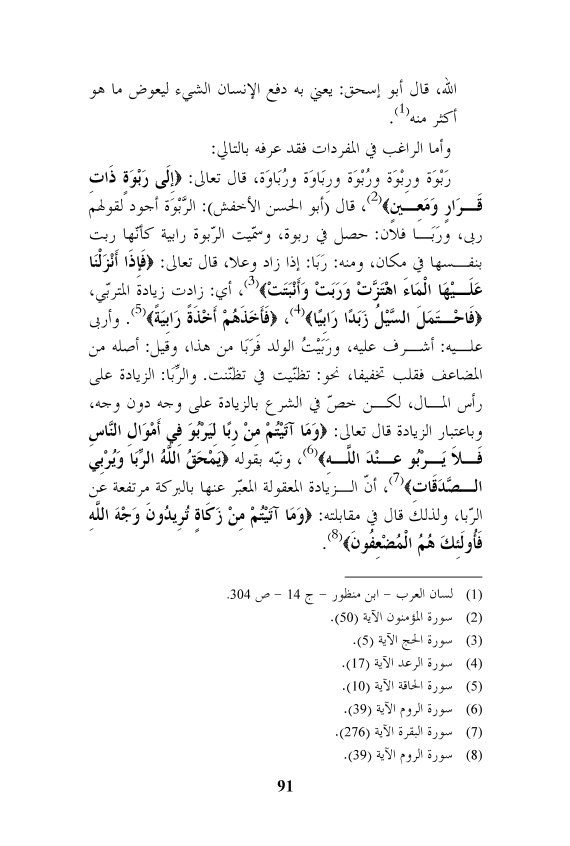 الله، قال أبو إسحق: يعني به دفع الإنسان الشيء ليعوض ما هو
أكثر منه(1).
وأما الراغب في المفردات فقد عرفه بالتالي:
رَبْوَة ورِبْوَة ورُبْوَة ورِبَاوَة ورُبَاوَة، قال تعالى: ﴿إِلَى رَبْوَةٍ ذَاتِ
قَـــرَارٍ وَمَعـــينٍ﴾(2)، قال (أبو الحسن الأخفش): الرَّبْوَة أجود لقولهم
ربى، ورَبَـــا فلان: حصل في ربوة، وسمّيت الرّبوة رابية كأنّها ربت
بنفـــسها في مكان، ومنه: رَبَا: إذا زاد وعلا، قال تعالى: ﴿فَإِذَا أَنْزَلْنَا
عَلَـــيْهَا الْمَاءَ اهْتَزَّتْ وَرَبَتْ وَأَنْبَتَتْ﴾(3)، أي: زادت زيادة المتربّي،
﴿فَاحْـــتَمَلَ السَّيْلُ زَبَدًا رَابِيًا﴾(4)، ﴿فَأَخَذَهُمْ أَخْذَةً رَابِيَةً﴾(5). وأربى
علـــيه: أشـــرف عليه، ورَبَيْتُ الولد فَرَبَا من هذا، وقيل: أصله من
المضاعف فقلب تخفيفا، نحو: تظنّيت في تظنّنت. والرِّبَا: الزيادة على
رأس المـــال، لكـــن خصّ في الشرع بالزيادة على وجه دون وجه،
وباعتبار الزيادة قال تعالى: ﴿وَمَا آتَيْتُمْ مِنْ رِبًا لِيَرْبُوَ فِي أَمْوَالِ النَّاسِ
فَـــلاَ يَـــرْبُو عنْـــدَ اللَّـــهِ﴾(6)، ونبّه بقوله ﴿يَمْحَقُ اللَّهُ الرِّبَا وَيُرْبِي
الـــصَّدَقَاتِ﴾(7)، أنّ الـــزيادة المعقولة المعبّر عنها بالبركة مرتفعة عن
الرّبا، ولذلك قال في مقابلته: ﴿وَمَا آتَيْتُمْ مِنْ زَكَاةٍ تُرِيدُونَ وَجْهَ اللَّهِ
فَأُولَئِكَ هُمُ الْمُضْعِفُونَ﴾(8).
(1) لسان العرب – ابن منظور – ج 14 – ص 304.
(2) سورة المؤمنون الآية (50).
(3) سورة الحج الآية (5).
(4) سورة الرعد الآية (17).
(5) سورة الحاقة الآية (10).
(6) سورة الروم الآية (39).
(7) سورة البقرة الآية (276).
(8) سورة الروم الآية (39).
91